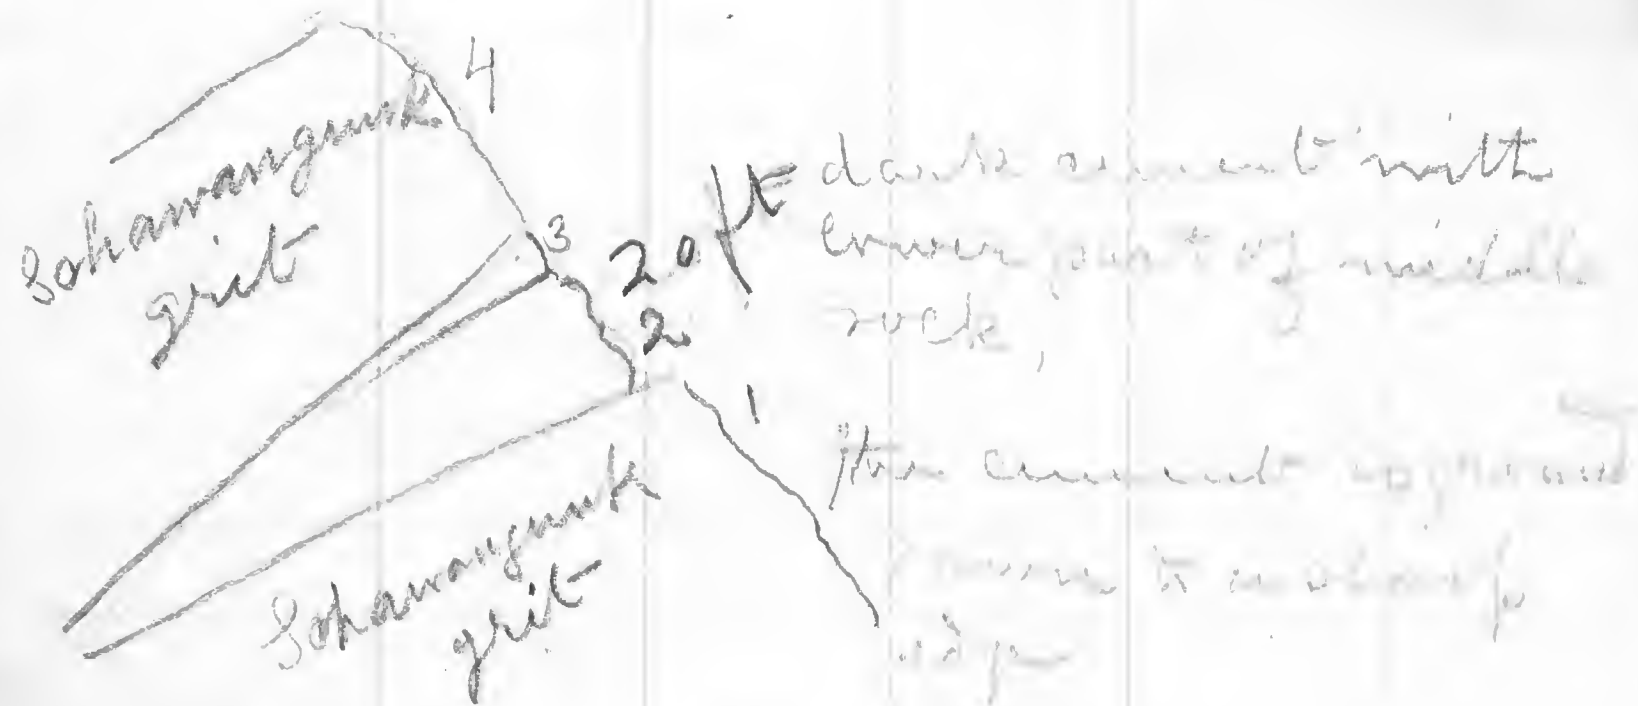 4
Sohawangunk
grit
3
20 ft
2
1
Sohawangunk
grit
dark cement with
lower part of middle
rock,
the cement
to a sharp
edge